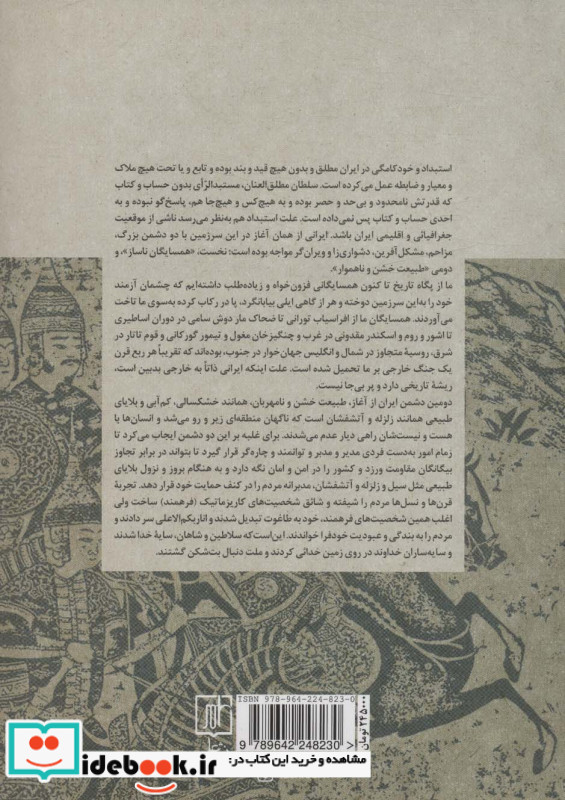 استبداد و خودکامگی در ایران مطلق و بدون هیچ قید و بند بوده و تابع و یا تحت هیچ ملاک
و معیار و ضابطه عمل می‌کرده است. سلطان مطلق‌العنان، مستبدالرّأی بدون حساب و کتاب
که قدرتش نامحدود و بی‌حد و حصر بوده و به هیچ‌کس و هیچ‌جا هم، پاسخ‌گو نبوده و به
احدی حساب و کتاب پس نمی‌داده است. علت استبداد هم به‌نظر می‌رسد ناشی از موقعیت
جغرافیائی و اقلیمی ایران باشد. ایرانی از همان آغاز در این سرزمین با دو دشمن بزرگ،
مزاحم، مشکل‌آفرین، دشواری‌زا و ویران‌گر مواجه بوده است؛ نخست، «همسایگان ناساز»، و
دومی «طبیعت خشن و ناهموار».
ما از پگاه تاریخ تا کنون همسایگانی فزون‌خواه و زیاده‌طلب داشته‌ایم که چشمان آزمند
خود را به‌این سرزمین دوخته و هر از گاهی ایلی بیابانگرد، پا در رکاب کرده به‌سوی ما تاخت
می‌آوردند. همسایگان ما از افراسیاب تورانی تا ضحاک مار دوش سامی در دوران اساطیری
تا اشور و روم و اسکندر مقدونی در غرب و چنگیزخان مغول و تیمور گورکانی و قوم تاتار در
شرق، روسیهٔ متجاوز در شمال و انگلیس جهان‌خوار در جنوب، بوده‌اند که تقریباً هر ربع قرن
یک جنگ خارجی بر ما تحمیل شده است. علت اینکه ایرانی ذاتاً به خارجی بدبین است،
ریشهٔ تاریخی دارد و پر بی‌جا نیست.
دومین دشمن ایران از آغاز، طبیعت خشن و نامهربان، همانند خشکسالی، کم‌آبی و بلایای
طبیعی همانند زلزله و آتشفشان است که ناگهان منطقه‌ای زیر و رو می‌شد و انسان‌ها با
هست و نیست‌شان راهی دیار عدم می‌شدند. برای غلبه بر این دو دشمن ایجاب می‌کرد تا
زمام امور به‌دست فردی مدیر و مدبر و توانمند و چاره‌گر قرار گیرد تا بتواند در برابر تجاوز
بیگانگان مقاومت ورزد و کشور را در امن و امان نگه دارد و به هنگام بروز و نزول بلایای
طبیعی مثل سیل و زلزله و آتشفشان، مدبرانه مردم را در کنف حمایت خود قرار دهد. تجربهٔ
قرن‌ها و نسل‌ها مردم را شیفته و شائق شخصیت‌های کاریزماتیک (فرهمند) ساخت ولی
اغلب همین شخصیت‌های فرهمند، خود به طاغوت تبدیل شدند و اناربکم‌الاعلی سر دادند و
مردم را به بندگی و عبودیت خودفرا خواندند. این‌است که سلاطین و شاهان، سایهٔ خدا شدند
و سایه‌ساران خداوند در روی زمین خدائی کردند و ملت دنبال بت‌شکن گشتند.
ISBN 978-964-224-823-0
9 789642 248230
۲۴۵۰۰۰ تومان
مشاهده و خرید این کتاب در:
idebook.ir